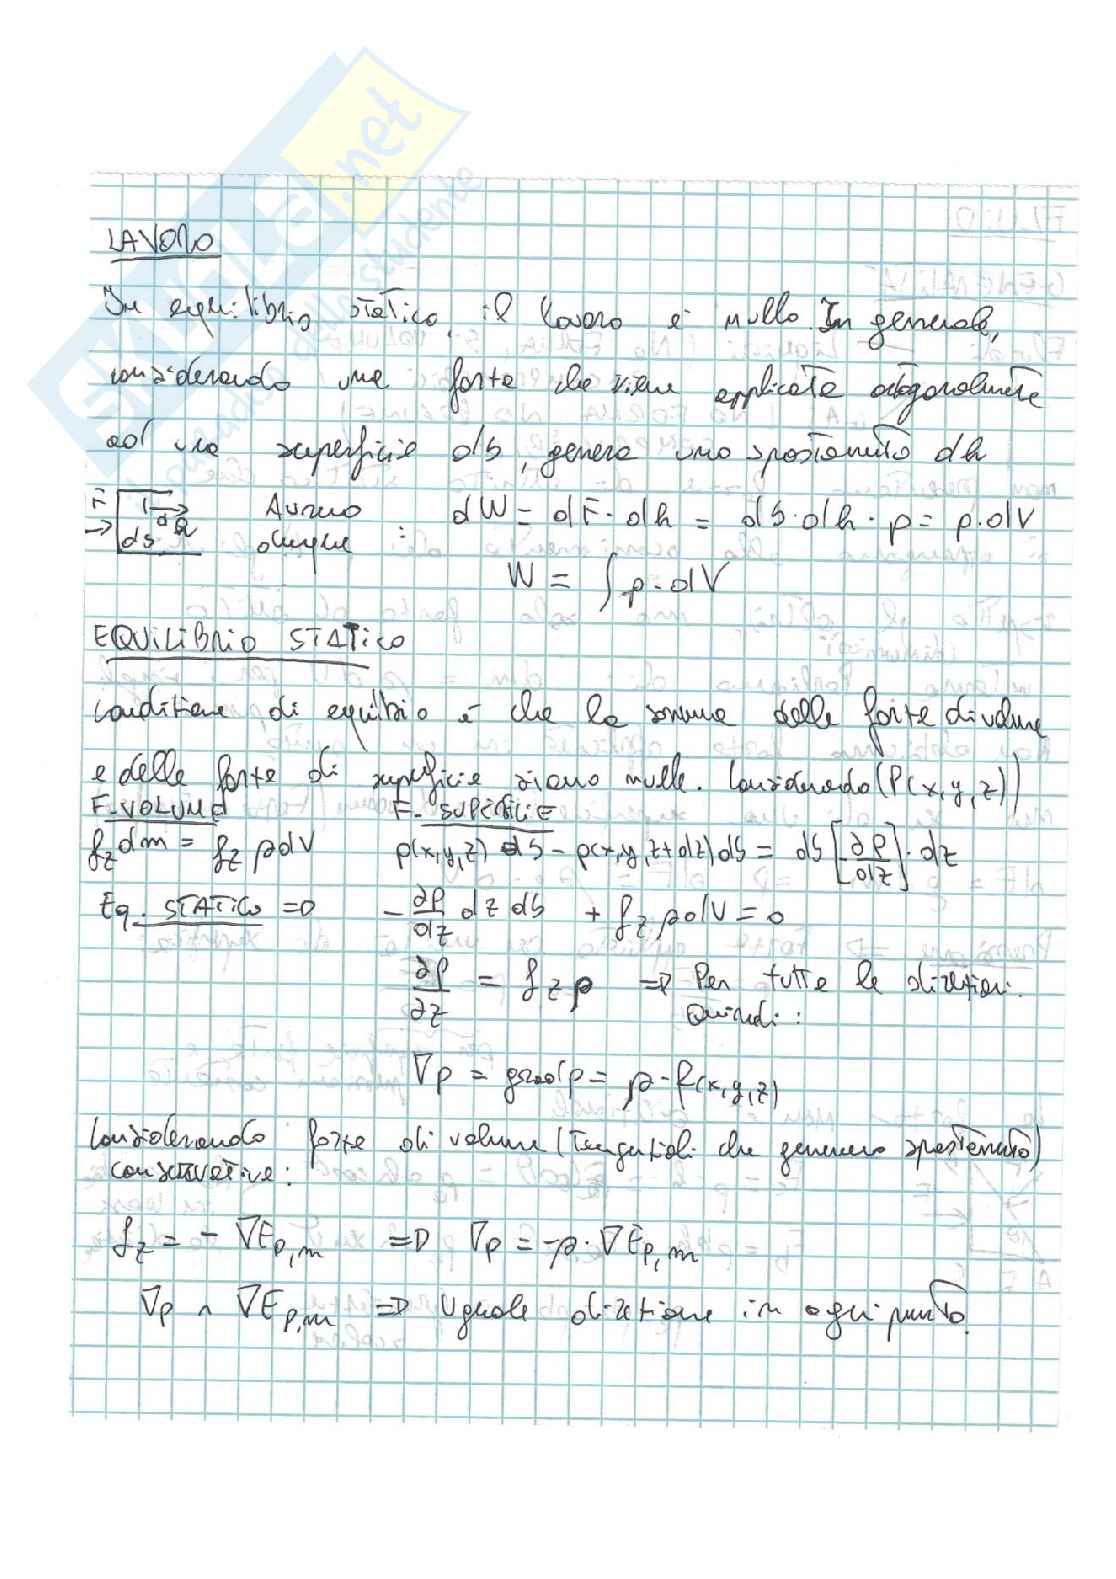 SKUOLA.net
dello studente
LAVORO
In equilibrio statico, il lavoro è nullo. In generale,
considerando una forza che viene applicata ortogonalmente
ad una superficie dS, genera uno spostamento dh
F dh dS
Avremo dunque : dW = dF · dh = dS · dh · p = p · dV
W = ∫ p · dV
EQUILIBRIO STATICO
Condizione di equilibrio è che la somma delle forze di volume
e delle forze di superficie siano nulle. Considerando (P(x,y,z))
F. VOLUME F. SUPERFICIE
f_z dm = f_z ρ dV p(x,y,z) dS - p(x,y,z+dz) dS = dS [∂p/dz] · dz
Eq. STATICO => - ∂p/dz dz dS + f_z ρ dV = 0
∂p/∂z = f_z ρ => Per tutte le direzioni.
Quindi :
∇p = grad p = ρ · f(x,y,z)
Considerando forze di volume (Tangenziali che generano spostamento)
conservative :
f_z = - ∇E_p,m => ∇p = -ρ · ∇E_p,m
∇p ∧ ∇E_p,m => Uguale direzione in ogni punto.